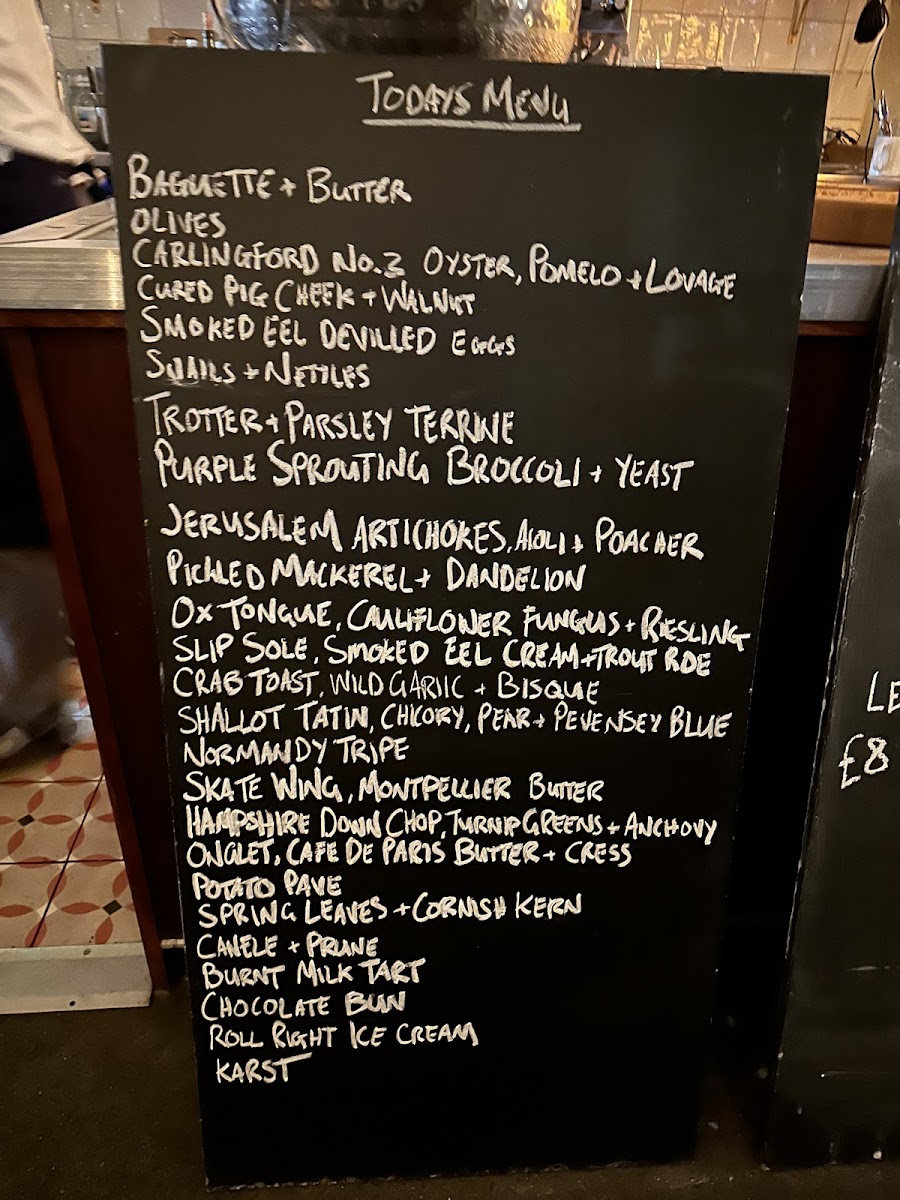 TODAYS MENU
BAGUETTE + BUTTER
OLIVES
CARLINGFORD NO.3 OYSTER, POMELO + LOVAGE
CURED PIG CHEEK + WALNUT
SMOKED EEL DEVILLED EGGS
SNAILS + NETTLES
TROTTER + PARSLEY TERRINE
PURPLE SPROUTING BROCCOLI + YEAST
JERUSALEM ARTICHOKES, AIOLI + POACHER
PICKLED MACKEREL + DANDELION
OX TONGUE, CAULIFLOWER FUNGUS + RIESLING
SLIP SOLE, SMOKED EEL CREAM + TROUT ROE
CRAB TOAST, WILD GARLIC + BISQUE
SHALLOT TATIN, CHICORY, PEAR + PEVENSEY BLUE
NORMANDY TRIPE
SKATE WING, MONTPELLIER BUTTER
HAMPSHIRE DOWN CHOP, TURNIP GREENS + ANCHOVY
ONGLET, CAFE DE PARIS BUTTER + CRESS
POTATO PAVE
SPRING LEAVES + CORNISH KERN
CANELE + PRUNE
BURNT MILK TART
CHOCOLATE BUN
ROLL RIGHT ICE CREAM
KARST
LE
£8